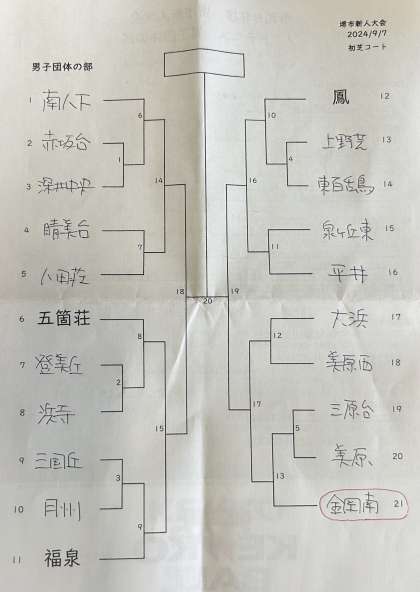 堺市新人大会
2024/9/7
初芝コート
男子団体の部
1 南八下
2 赤坂台
3 深井中央
4 晴美台
5 八田荘
6 五箇荘
7 登美丘
8 浜寺
9 三国丘
10 月州
11 福泉
鳳 12
上野芝 13
東百舌鳥 14
泉ヶ丘東 15
平井 16
大浜 17
美原西 18
三原台 19
美原 20
金岡南 21
1
2
3
4
5
6
7
8
9
10
11
12
13
14
15
16
17
18
19
20